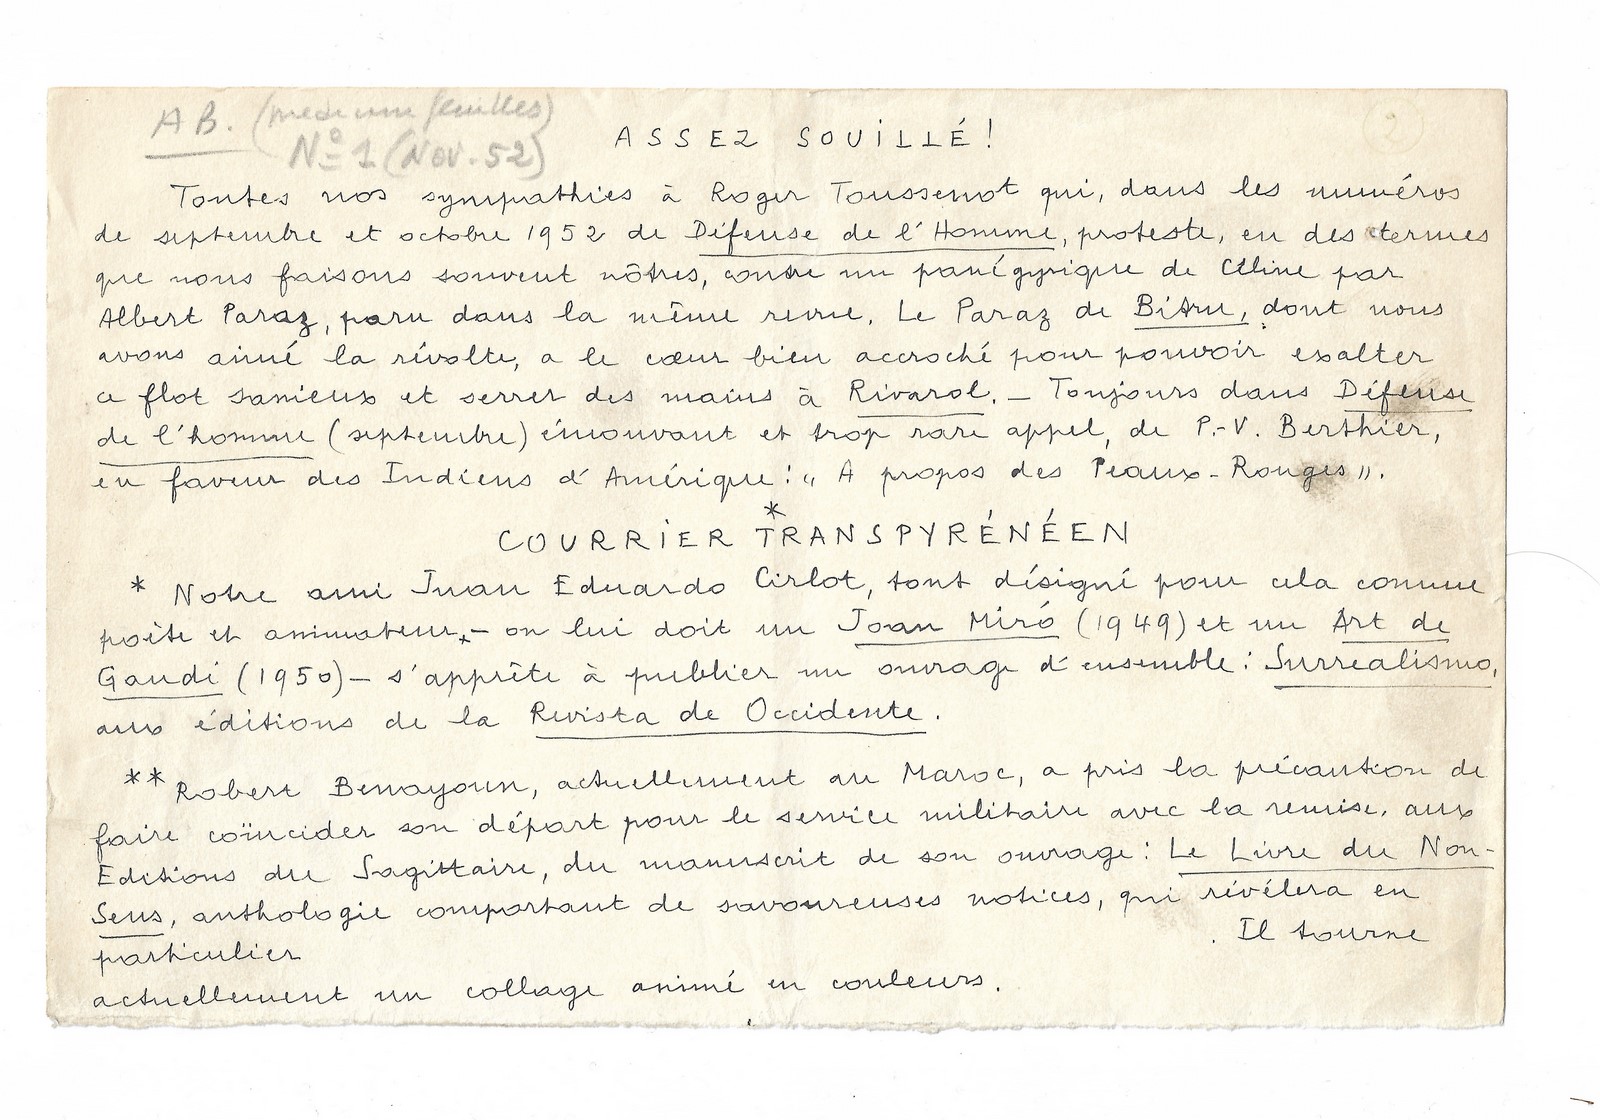 AB. (medium feuilles)
Nº 1 (Nov. 52)
2
ASSEZ SOUILLÉ!
Toutes nos sympathies à Roger Toussenot qui, dans les numéros
de septembre et octobre 1952 de Défense de l'Homme, proteste, en des termes
que nous faisons souvent nôtres, contre un panégyrique de Céline par
Albert Paraz, paru dans la même revue. Le Paraz de Bitru, dont nous
avons aimé la révolte, a le cœur bien accroché pour pouvoir exalter
ce flot sanieux et serrer des mains à Rivarol. — Toujours dans Défense
de l'homme (septembre) émouvant et trop rare appel, de P.-V. Berthier,
en faveur des Indiens d'Amérique : « A propos des Peaux-Rouges ».
*
COURRIER TRANSPYRÉNÉEN
* Notre ami Juan Eduardo Cirlot, tout désigné pour cela comme
poète et animateur, — on lui doit un Joan Miró (1949) et un Art de
Gaudi (1950) — s'apprête à publier un ouvrage d'ensemble : Surrealismo,
aux éditions de la Revista de Occidente.
** Robert Benayoun, actuellement au Maroc, a pris la précaution de
faire coïncider son départ pour le service militaire avec la remise, aux
Editions du Sagittaire, du manuscrit de son ouvrage : Le Livre du Non-
Sens, anthologie comportant de savoureuses notices, qui révélera en
particulier . Il tourne
actuellement un collage animé en couleurs.